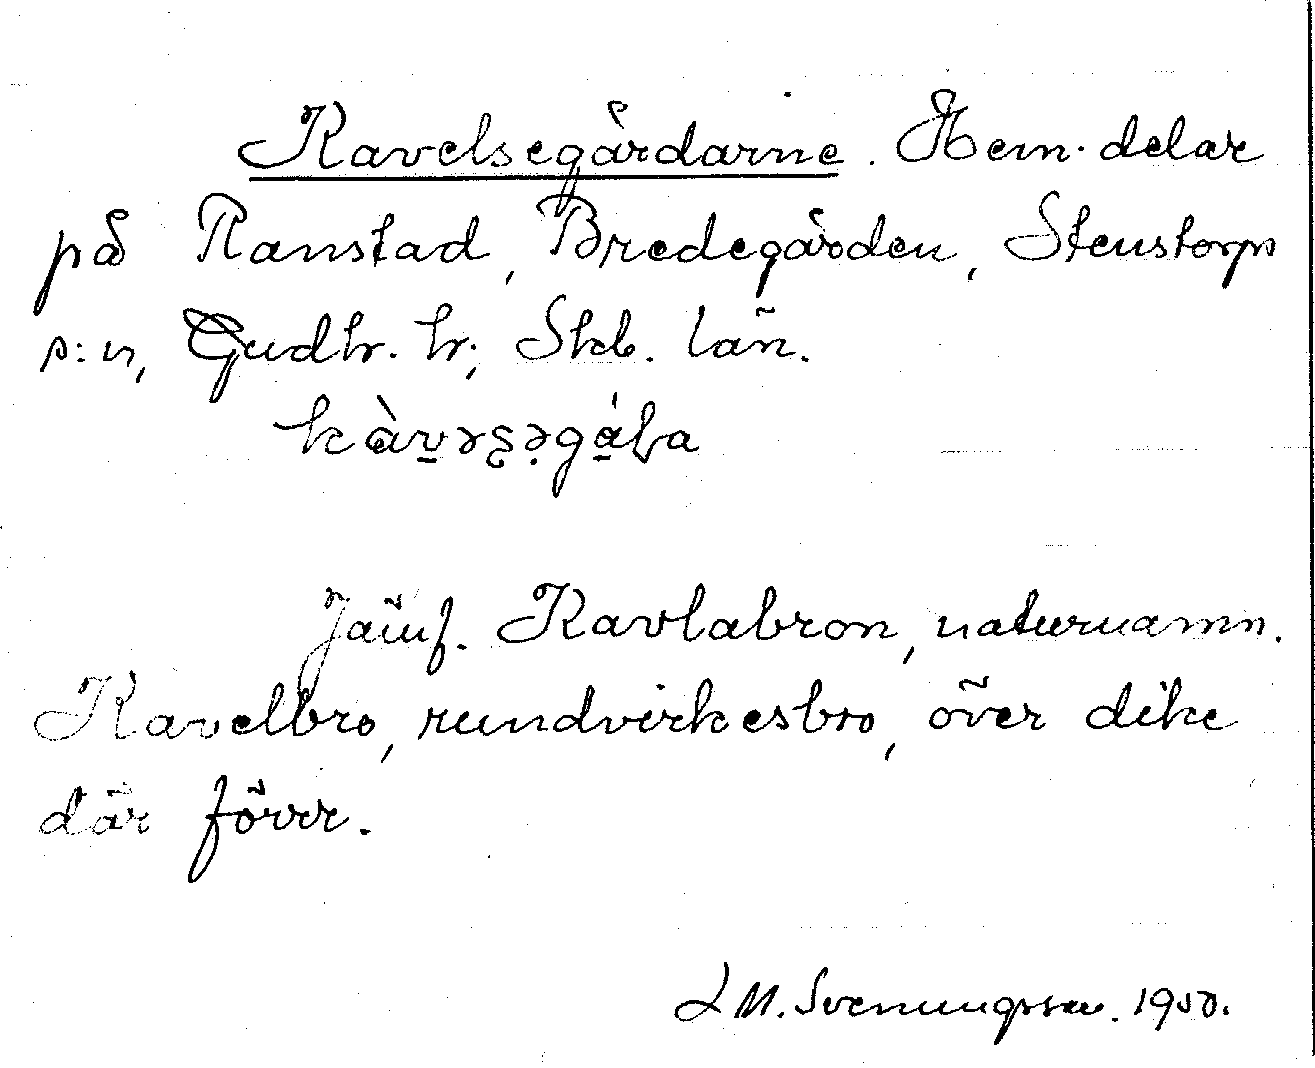 Kavelsegårdarne. Hem. delar
på Ranstad, Bredegården, Stenstorps
s:n, Gudh. h:, Skb. län.
Jämf. Kavlabron, naturnamn.
Kavelbro, rundvirkesbro, över dike
där förr.
L M. Svenungsson. 1950.